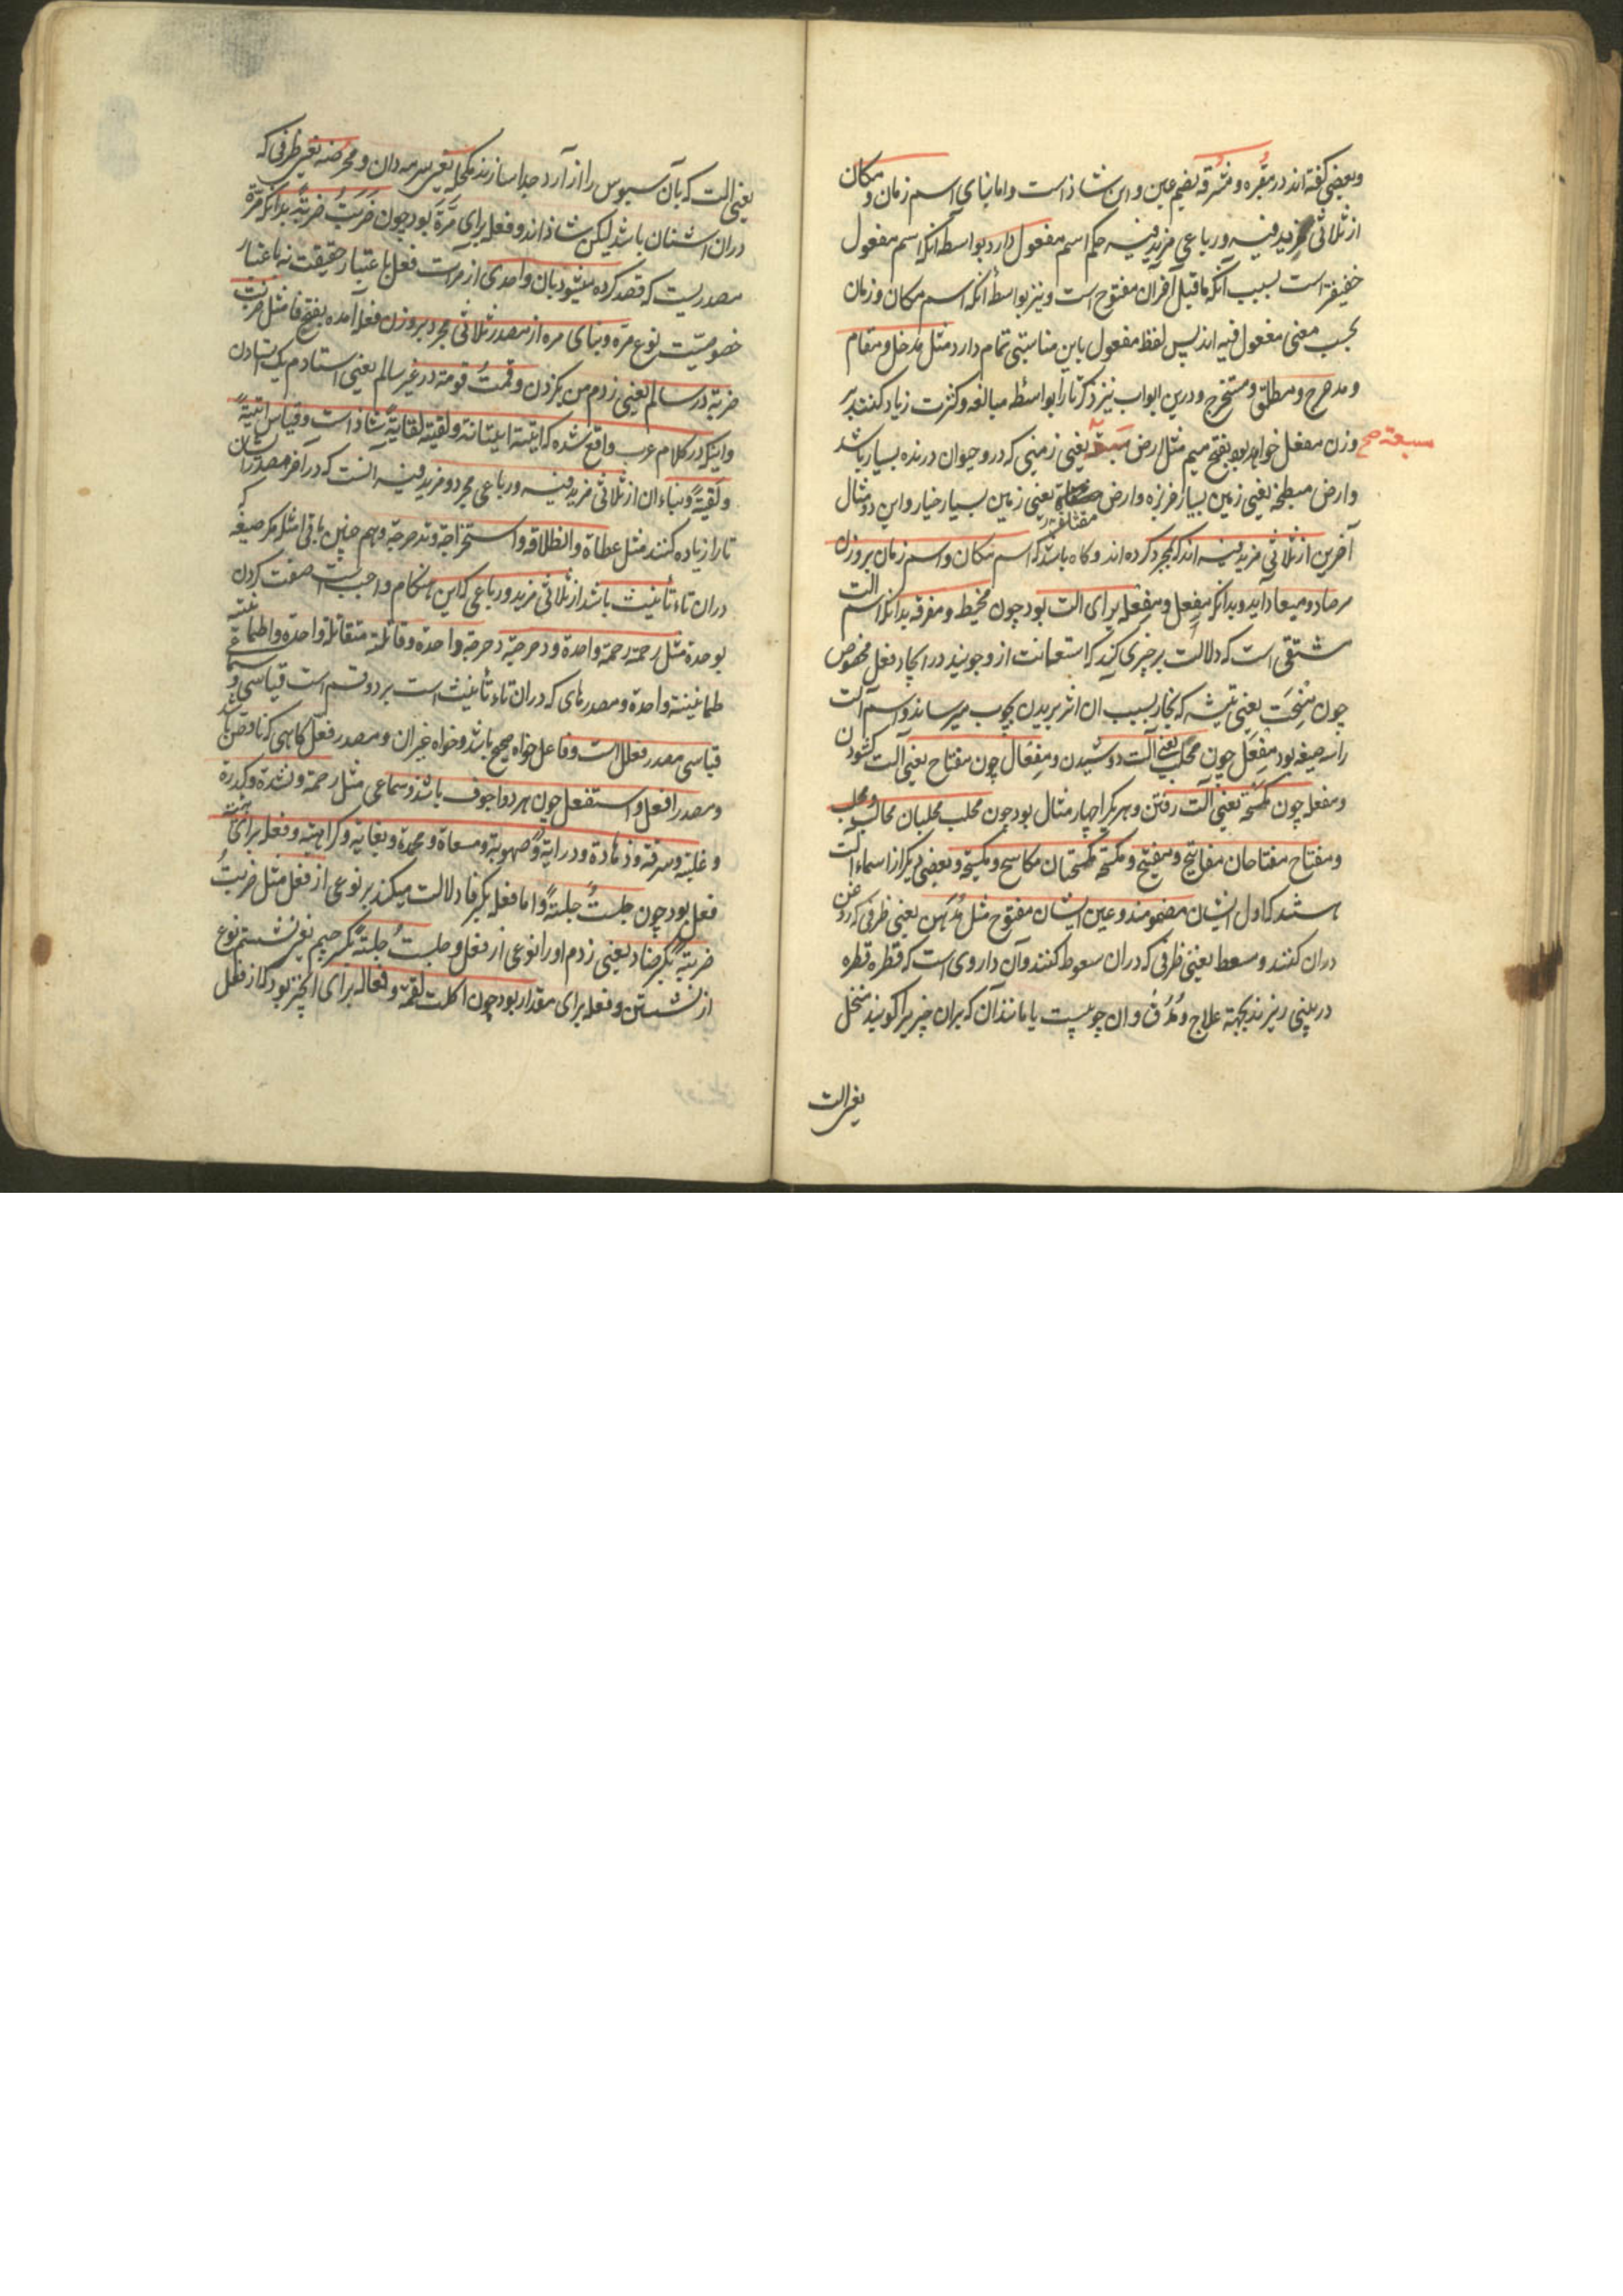 وبعضی گفته‌اند در مقبره و مشرقه بضم عین و این شاذ است و اما بنای اسم زمان و مکان
از ثلاثی مزید فیه و رباعی مزید فیه حکم اسم مفعول دارد بواسطه آنکه اسم مفعول
خفیفتر است بسبب آنکه ماقبل آخر آن مفتوح است و نیز بواسطهٔ آنکه اسم مکان و زمان
بحسب معنی مفعول فیه‌اند پس لفظ مفعول باین مناسبتی تمام دارد مثل مدخل و مقام
و مدحرج و منطلق و مستخرج و درین ابواب نیز ذکر تا را بواسطهٔ مبالغه و کثرت زیاد کنند بر
وزن مفعل خواهد بود بفتح میم مثل ارض مسبعة یعنی زمینی که درو حیوان درنده بسیار باشد
مسبعة صح
و ارض مبطخه یعنی زمین بسیار خربزه و ارض مقثاة یعنی زمین بسیار خیار و این دو مثال
آخرین از ثلاثی مزید فیه‌اند که مجرد کرده‌اند و گاه باشد که اسم مکان و اسم زمان بر وزن
مرصاد و میعاد آید و بدانکه مِفعل و مِفعله برای الت بود چون مخیط و مغرفه بدانکه اسم الت
مشتقی است که دلالت بر چیزی کند که استعانت ازو جویند در ایجاد فعل مخصوص
چون مِنْحَت یعنی تیشه که نجار بسبب آن اثر بریدن بچوب میرساند و اسم آلت
را سه صیغه بود مِفعَل چون محلب یعنی آلت دوشیدن و مِفعال چون مفتاح یعنی آلت گشودن
و مفعله چون مکسحه یعنی آلت رفتن و هر یکرا چهار مثال بود چون محلب محلبان محالب و محیلب
و مفتاح مفتاحان مفاتیح و مفیتیح و مکسحه مکسحتان مکاسح و مکیسحه و بعضی دیگر از اسماء الت
هستند که اول ایشان مضمومند و عین ایشان مفتوح مثل مُدهن یعنی ظرفی که روغن
در آن کنند و مسعط یعنی ظرفی که در آن سعوط کنند و آن داروی است که قطره قطره
در بینی ریزند بجهة علاج و مُدُق و آن چوبیست یا مانند آن که بر آن چیز را کوبند منخل
یعنی الت
یعنی الت که بآن سبوس را از آرد جدا سازند مکحله یعنی سرمه‌دان و محرضه یعنی ظرفی که
در آن اشنان باشد لیکن شاذ‌اند و فعله برای مَرَّة بود چون ضَرَبتُ ضَربَةً بدانکه مَرَّة
مصدریست که قصد کرده میشود بآن واحدی از مرات فعل باعتبار حقیقت نه باعتبار
خصوصیت نوع مره و بنای مره از مصدر ثلاثی مجرد بر وزن فعله آمده بفتح فا مثل ضربت
ضربة در سالم یعنی زدم من یک زدن و قمتُ قومة در غیر سالم یعنی استادم یک استادن
و اینکه در کلام عرب واقع شده که اتیته اتیانة و لقیته لقایةً شاذ است و قیاس اتیةً
و لَقیةً و بناء آن از ثلاثی مزید فیه و رباعی مجرد و مزید فیه آنست که در آخر مصدر ایشان
تا را زیاده کنند مثل عطاة و انطلاقه و استخراجة و تدحرجة و هم چنین باقی امثله مگر صیغه که
در آن تاء تأنیث باشد از ثلاثی مزید و رباعی که این هنگام واجب است صفت کردن
بوحدة مثل رحمته رحمة واحدة و دحرجته دحرجة واحدة و قاتلته مقاتلة واحدة و اطمأننت
طمانینة واحدة و مصدرهای که در آن تاء تأنیث است بر دو قسم است قیاسی و سماعی
قیاسی مصدر فعلل است و فاعل خواه صحیح باشد و خواه غیر آن و مصدر فعّل گاهی که ناقص باشد
و مصدر افعل و استفعل چون هر دو اجوف باشند و سماعی مثل رحمة و نشدة و کدرة
و غلبة و سرقة و زهادة و درایة و صهوبة و مسعاة و محمدة و بغایة و کراهیة و فعله برای هیئت
فعل بود چون جلستُ جِلسةً و اما فعله بکسر فا دلالت میکند بر نوعی از فعل مثل ضربتُ
ضِربةً بکسر ضاد یعنی زدم او را نوعی از فعل و جلستُ جِلسةً بکسر جیم یعنی نشستم نوع
از نشستن و فعله برای مقدار بود چون اکلت لقمة و فعاله برای آنچیز بود که از فعل